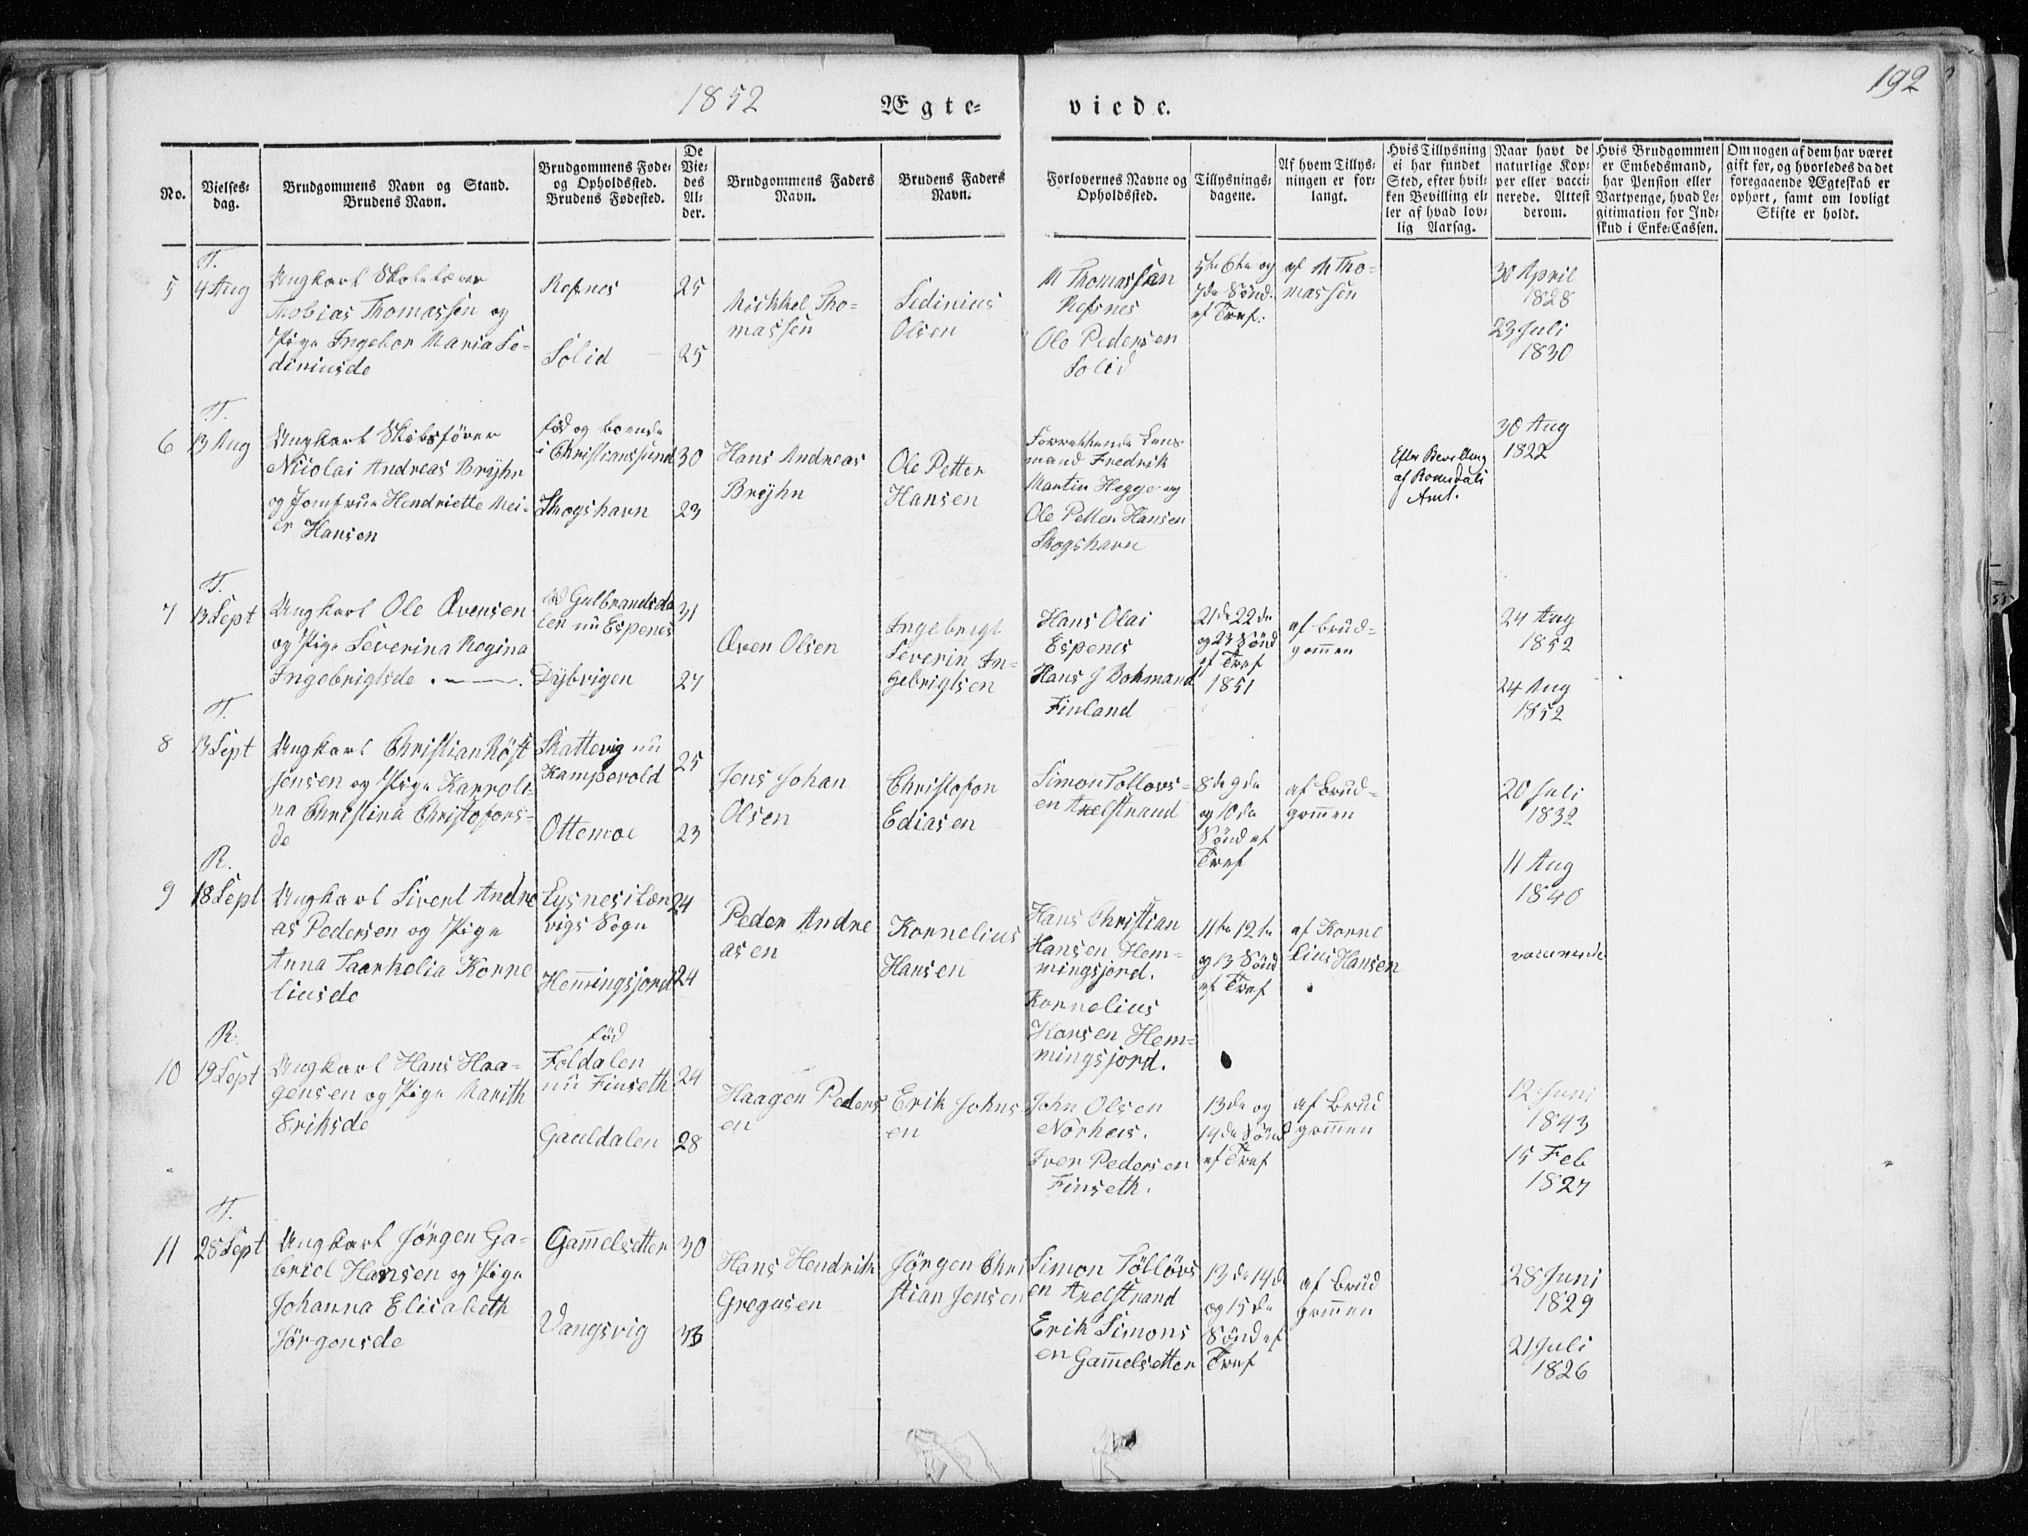 1852
Ægte-
viede.
192
No.
Vielses-
dag.
Brudgommens Navn og Stand.
Brudens Navn.
Brudgommens Føde-
og Opholdssted.
Brudens Fødested.
De
Vie-
des
Al-
der.
Brudgommens Faders
Navn.
Brudens Faders
Navn.
Forlovernes Navne og
Opholdssted.
Tillysnings-
dagene.
Af hvem Tillys-
ningen er for-
langt.
Hvis Tillysning
ei har fundet
Sted, efter hvil-
ken Bevilling el-
ler af hvad lov-
lig Aarsag.
Naar havt de
naturlige Kop-
per eller vacci-
nerede. Attest
derom.
Hvis Brudgommen
er Embedsmand,
har Pension eller
Vartpenge, hvad Le-
gitimation for Ind-
skud i Enke-Cassen.
Om nogen af dem har været
gift før, og hvorledes da det
foregaaende Ægteskab er
ophørt, samt om lovligt
Skifte er holdt.
T.
5
4 Aug
Ungkarl Skolelærer
Thobias Thomassen og
Pige Ingebor Maria Se-
diniusde
Refsnes
Solid
25
25
Mikkel Tho-
massen
Sedinius
Olsen
M Thomassen
Refsnes
Ole Pedersen
Solid
5te 6te og
7de Sönd.
ef Tref.
af M Tho-
massen
30 April
1828
23 Juli
1830
T.
6
13 Aug
Ungkarl Skibsförer
Nicolai Andreas Brÿhn
og Jomfrue Hendriette Mei-
er Hansen
fød og boende
i Christianssund
Skogshavn
30
23
Hans Andreas
Brÿhn
Ole Petter
Hansen
Forrettende Lens-
mand Fredrik
Martin Hegge og
Ole Petter Hansen
Skogshavn
Efter Bevilling
af Romsdals
Amt.
30 Aug
1822
T.
7
13 Sept
Ungkarl Ole Ovensen
og Pige Severina Regina
Ingebrigtsde
Gulbrandsda
len nu Espenes
Dÿbvigen
31
27
Oven Olsen
Ingebrigt
Severin In-
gebrigtsen
Hans Olai
Espenes
Hans J Bohmand
Finland
21de 22de
og 23 Sönd
ef Tref
1851
af Brud-
gommen
24 Aug
1852
24 Aug
1852
T.
8
13 Sept
Ungkarl Christian Röst
Jensen og Pige Karroli-
na Christina Christofors-
de
Skattevig nu
Kampevold
Ottemoe
25
23
Jens Johan
Olsen
Christofor
Ediasen
Simon Tollovs-
en Axelstrand
8de 9de
og 10de
Sönd ef
Tref
af Brud-
gommen
20 Juli
1832
11 Aug
1840
R.
9
18 Sept
Ungkarl Sivert Andre
as Pedersen og Pige
Anna Taarkelia Korne
liusde
Lysnes i Len
vigs Sogn
Hemmingsjord
24
24
Peder Andre
asen
Kornelius
Hansen
Hans Christian
Hansen Hem-
mingsjord.
Kornelius
Hansen Hem-
mingsjord.
11te 12te
og 13 Sönd
ef Tref
af Korne
lius Hansen
R.
10
19 Sept
Ungkarl Hans Haa-
gensen og Pige Marith
Eriksde
föd
Foldalen
nu Finseth
Gauldalen
24
28
Haagen Peders
en
Erik Johns
en
John Olsen
Nörhus.
Iver Pedersen
Finseth.
13de og
14de Sönd
ef Tref
af Brud
gommen
12 Juni
1843
15 Feb
1827
T.
11
28 Sept
Ungkarl Jörgen Ga-
briel Hansen og Pige
Johanna Elisabeth
Jörgensde
Gammelsetter
Vangsvig
30
33
Hans Hendrik
Gregusen
Jörgen Chri
stian Jensen
Simon Tollövs
en Axelstrand
Erik Simons
en Gammelsetter
13de 14de
og 15de
Sönd ef
Tref
af Brud
gommen
28 Juni
1829
21 Juli
1826